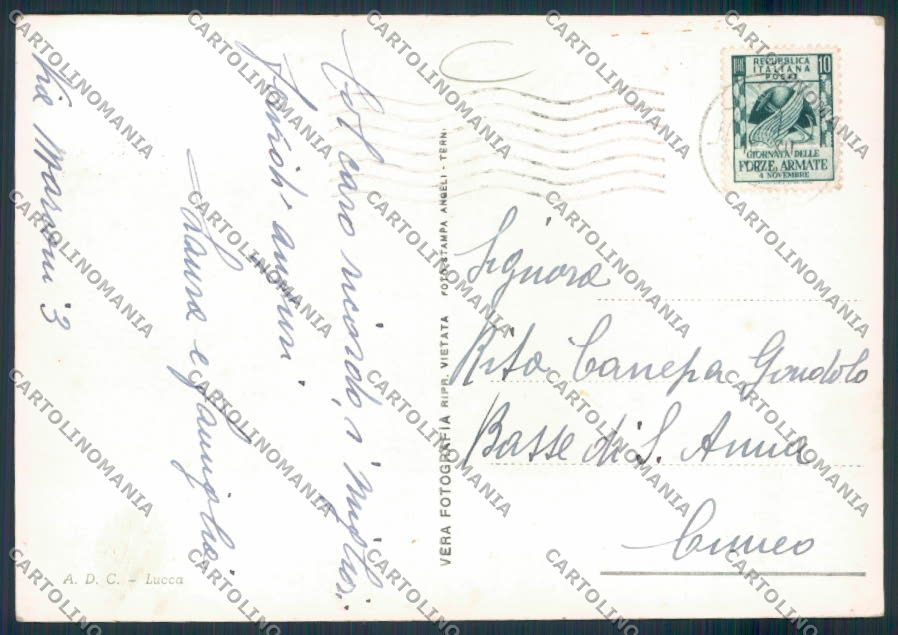 REPUBBLICA
ITALIANA
POSTE
10
GIORNATA DELLE
FORZE ARMATE
4 NOVEMBRE
Col caro ricordo, i migliori
fervidi auguri
Laura e famiglia
Via Marconi 3
VERA FOTOGRAFIA RIPR. VIETATA FOTOSTAMPA ANGELI - TERNI
Signora
Rita Canepa Gondolo
Basse di S. Anna
Cuneo
A. D. C. - Lucca
CARTOLINOMANIA